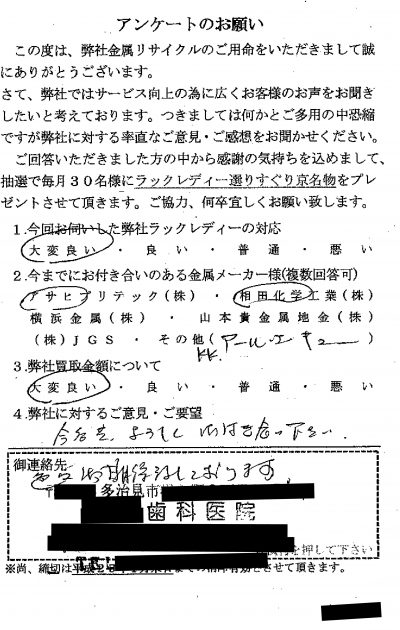 アンケートのお願い
この度は、弊社金属リサイクルのご用命をいただきまして誠
にありがとうございます。
さて、弊社ではサービス向上の為に広くお客様のお声をお聞き
したいと考えております。つきましては何かとご多用の中恐縮
ですが弊社に対する率直なご意見・ご感想をお聞かせください。
ご回答いただきました方の中から感謝の気持ちを込めまして、
抽選で毎月30名様にラックレディー選りすぐり京名物をプレ
ゼントさせて頂きます。ご協力、何卒宜しくお願い致します。
1.今回お伺いした弊社ラックレディーの対応
大変良い・良い・普通・悪い
2.今までにお付き合いのある金属メーカー様(複数回答可)
アサヒプリテック(株)・相田化学工業(株)
横浜金属(株)・山本貴金属地金(株)
(株)JGS・その他(
KK.
3.弊社買取金額について
大変良い・良い・普通・悪い
4.弊社に対するご意見・ご要望
下さい.
御連絡先
しております
多治見市
歯科医院
を押して下さい
※尚、締切は平成 までの消印有効とさせて頂きます。